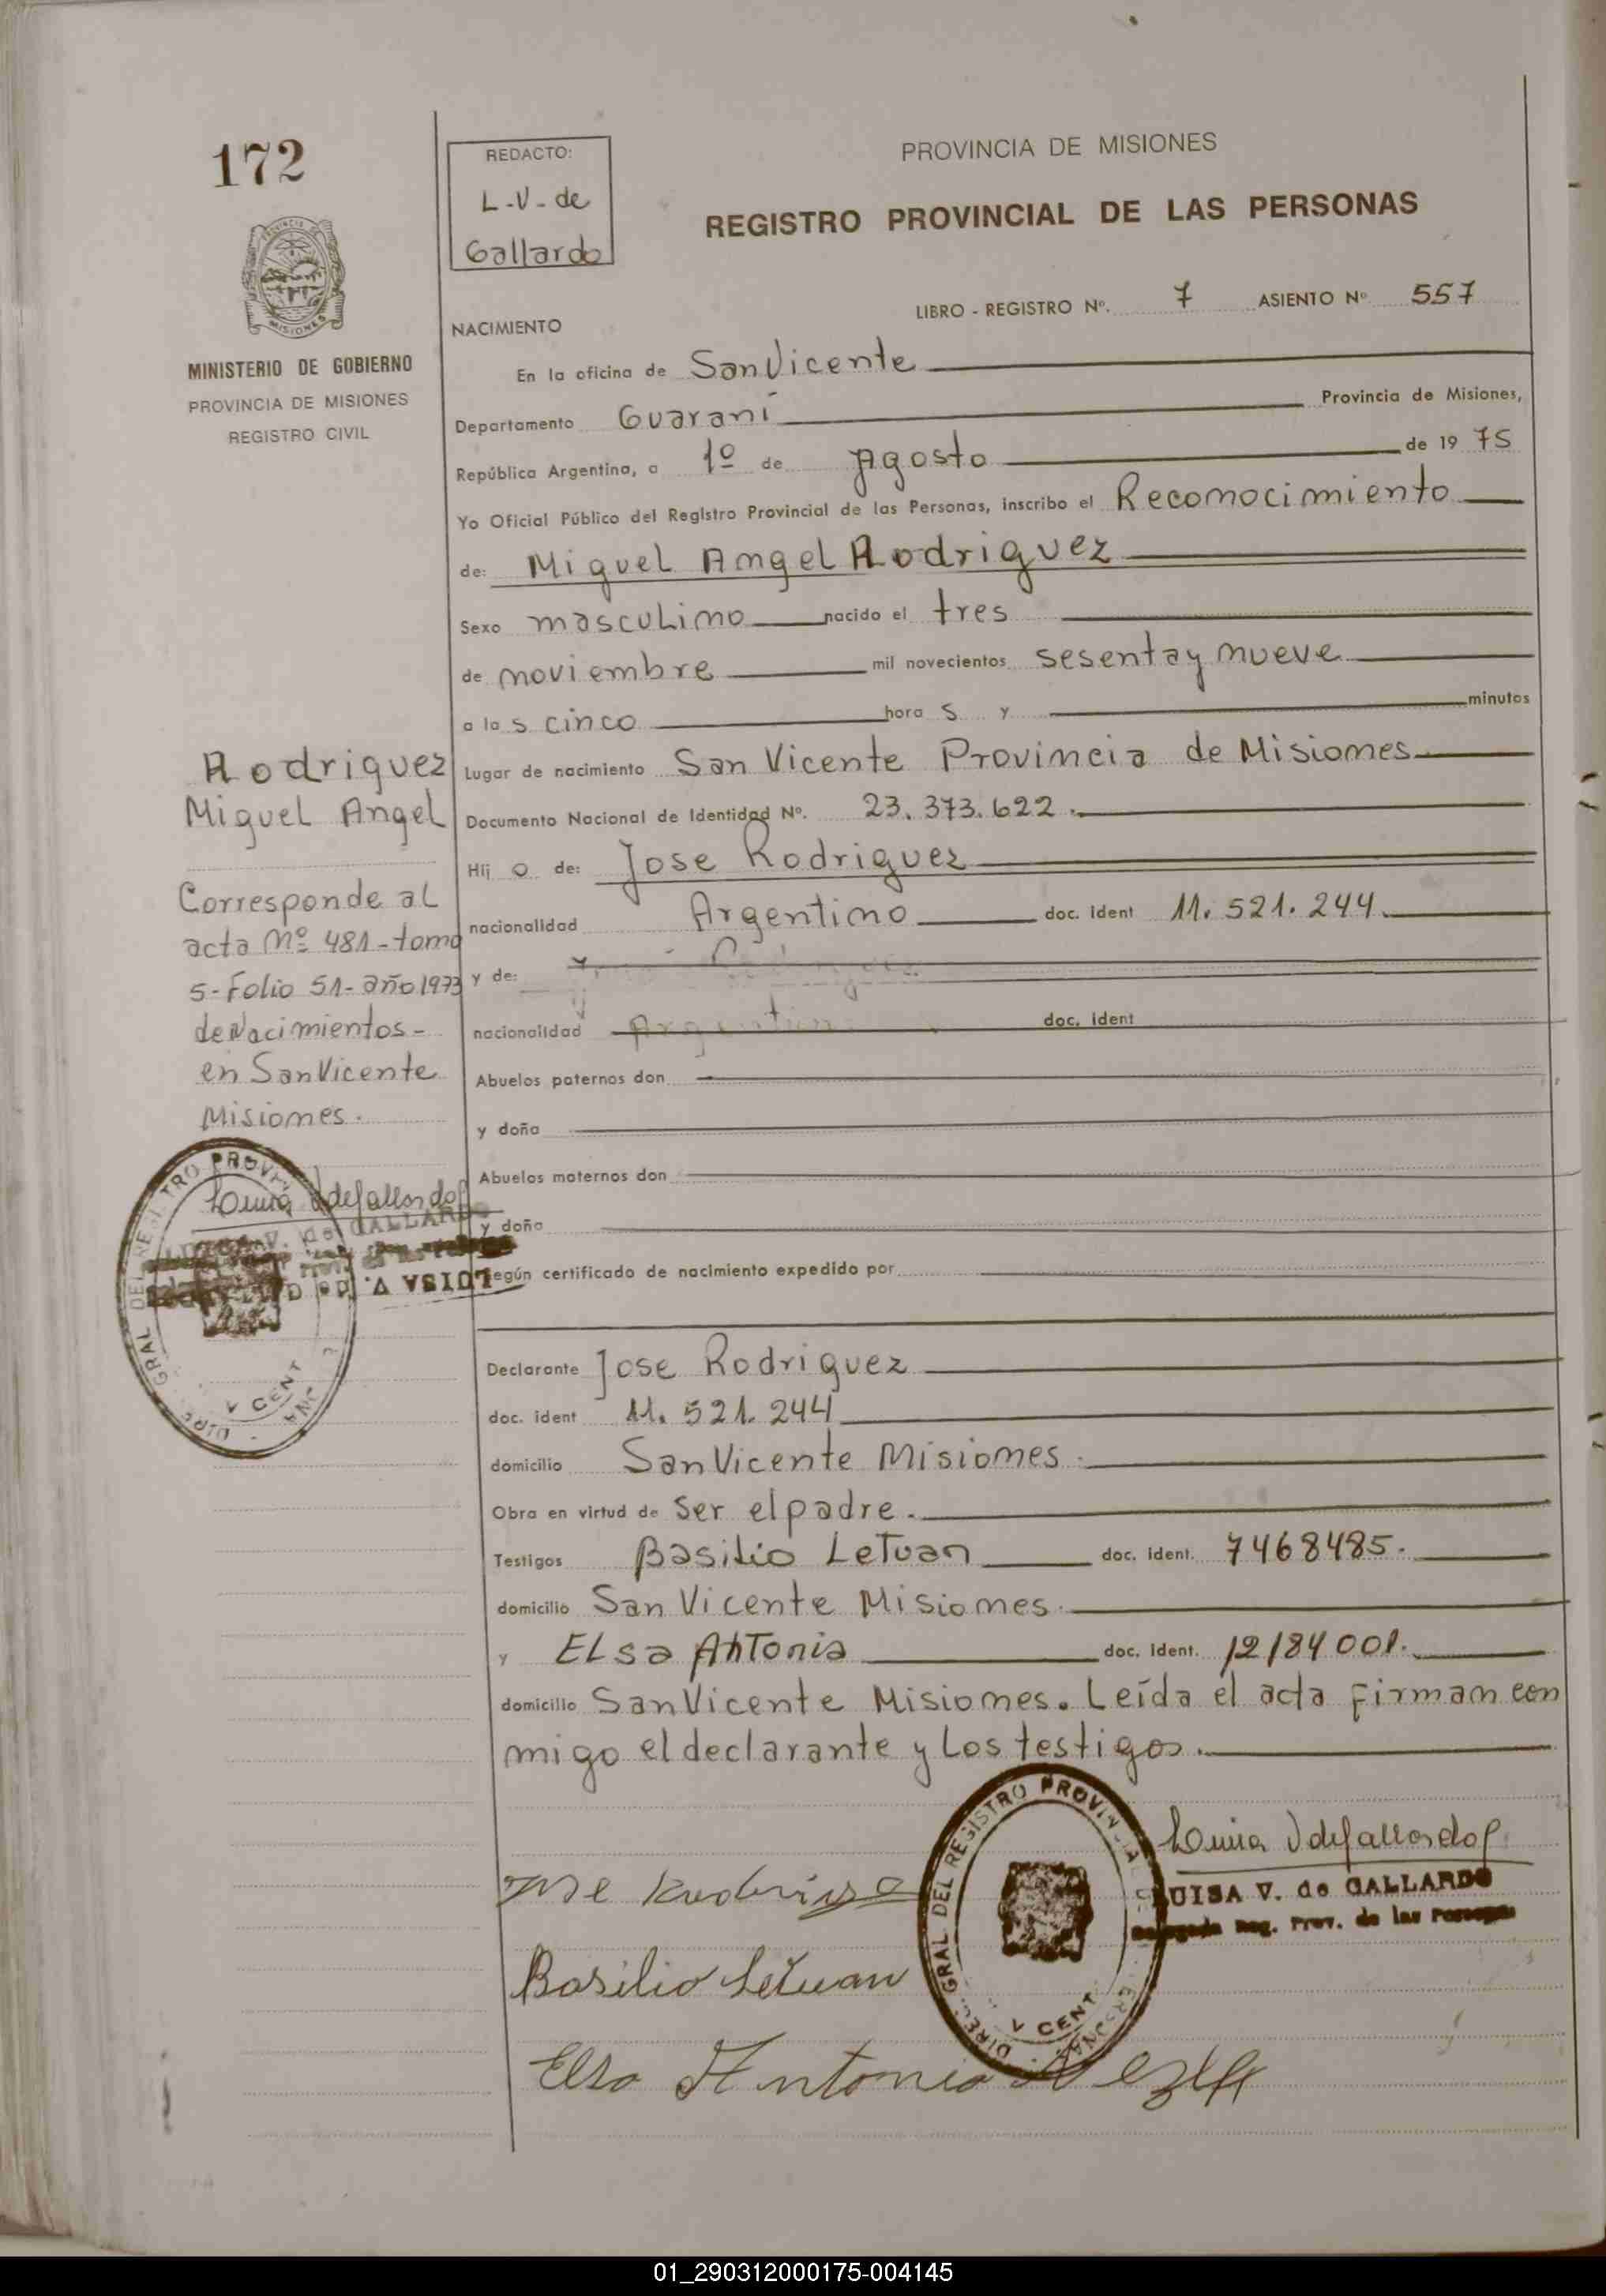 172
REDACTO:
L-V-de
Gallardo
PROVINCIA DE MISIONES
REGISTRO PROVINCIAL DE LAS PERSONAS
LIBRO - REGISTRO Nº. 7 ASIENTO Nº 557
MISIONES
MINISTERIO DE GOBIERNO
PROVINCIA DE MISIONES
REGISTRO CIVIL
NACIMIENTO
En la oficina de San Vicente
Departamento Guaraní Provincia de Misiones,
República Argentina, a 1º de Agosto de 19 75
Yo Oficial Público del Registro Provincial de las Personas, inscribo el Reconocimiento
de: Miguel Angel Rodriguez
Sexo masculino nacido el tres
de noviembre mil novecientos sesenta y nueve
a las cinco horas y minutos
Lugar de nacimiento San Vicente Provincia de Misiones
Documento Nacional de Identidad Nº. 23.373.622.
Hijo de: Jose Rodriguez
nacionalidad Argentino doc. ident 11.521.244
y de:
nacionalidad doc. ident
Abuelos paternos don
y doña
Abuelos maternos don
y doña
según certificado de nacimiento expedido por
Rodriguez
Miguel Angel
Corresponde al
acta Nº 481-tomo
5-Folio 51-año 1973
de Nacimientos-
en San Vicente
Misiones.
LUISA V. de GALLARDO
Declarante Jose Rodriguez
doc. ident 11.521.244
domicilio San Vicente Misiones.
Obra en virtud de ser el padre.
Testigos Basilio Letuan doc. ident. 7468485.
domicilio San Vicente Misiones.
y Elsa Antonia doc. ident. 12184001.
domicilio San Vicente Misiones. Leída el acta firman con
migo el declarante y los testigos.
Jose Rodriguez
Basilio Letuan
Elsa Antonia
DIREC. GRAL DEL REGISTRO PROVINCIAL
LUISA V. de GALLARDO
Delegada Reg. Prov. de las Personas
01_290312000175-004145